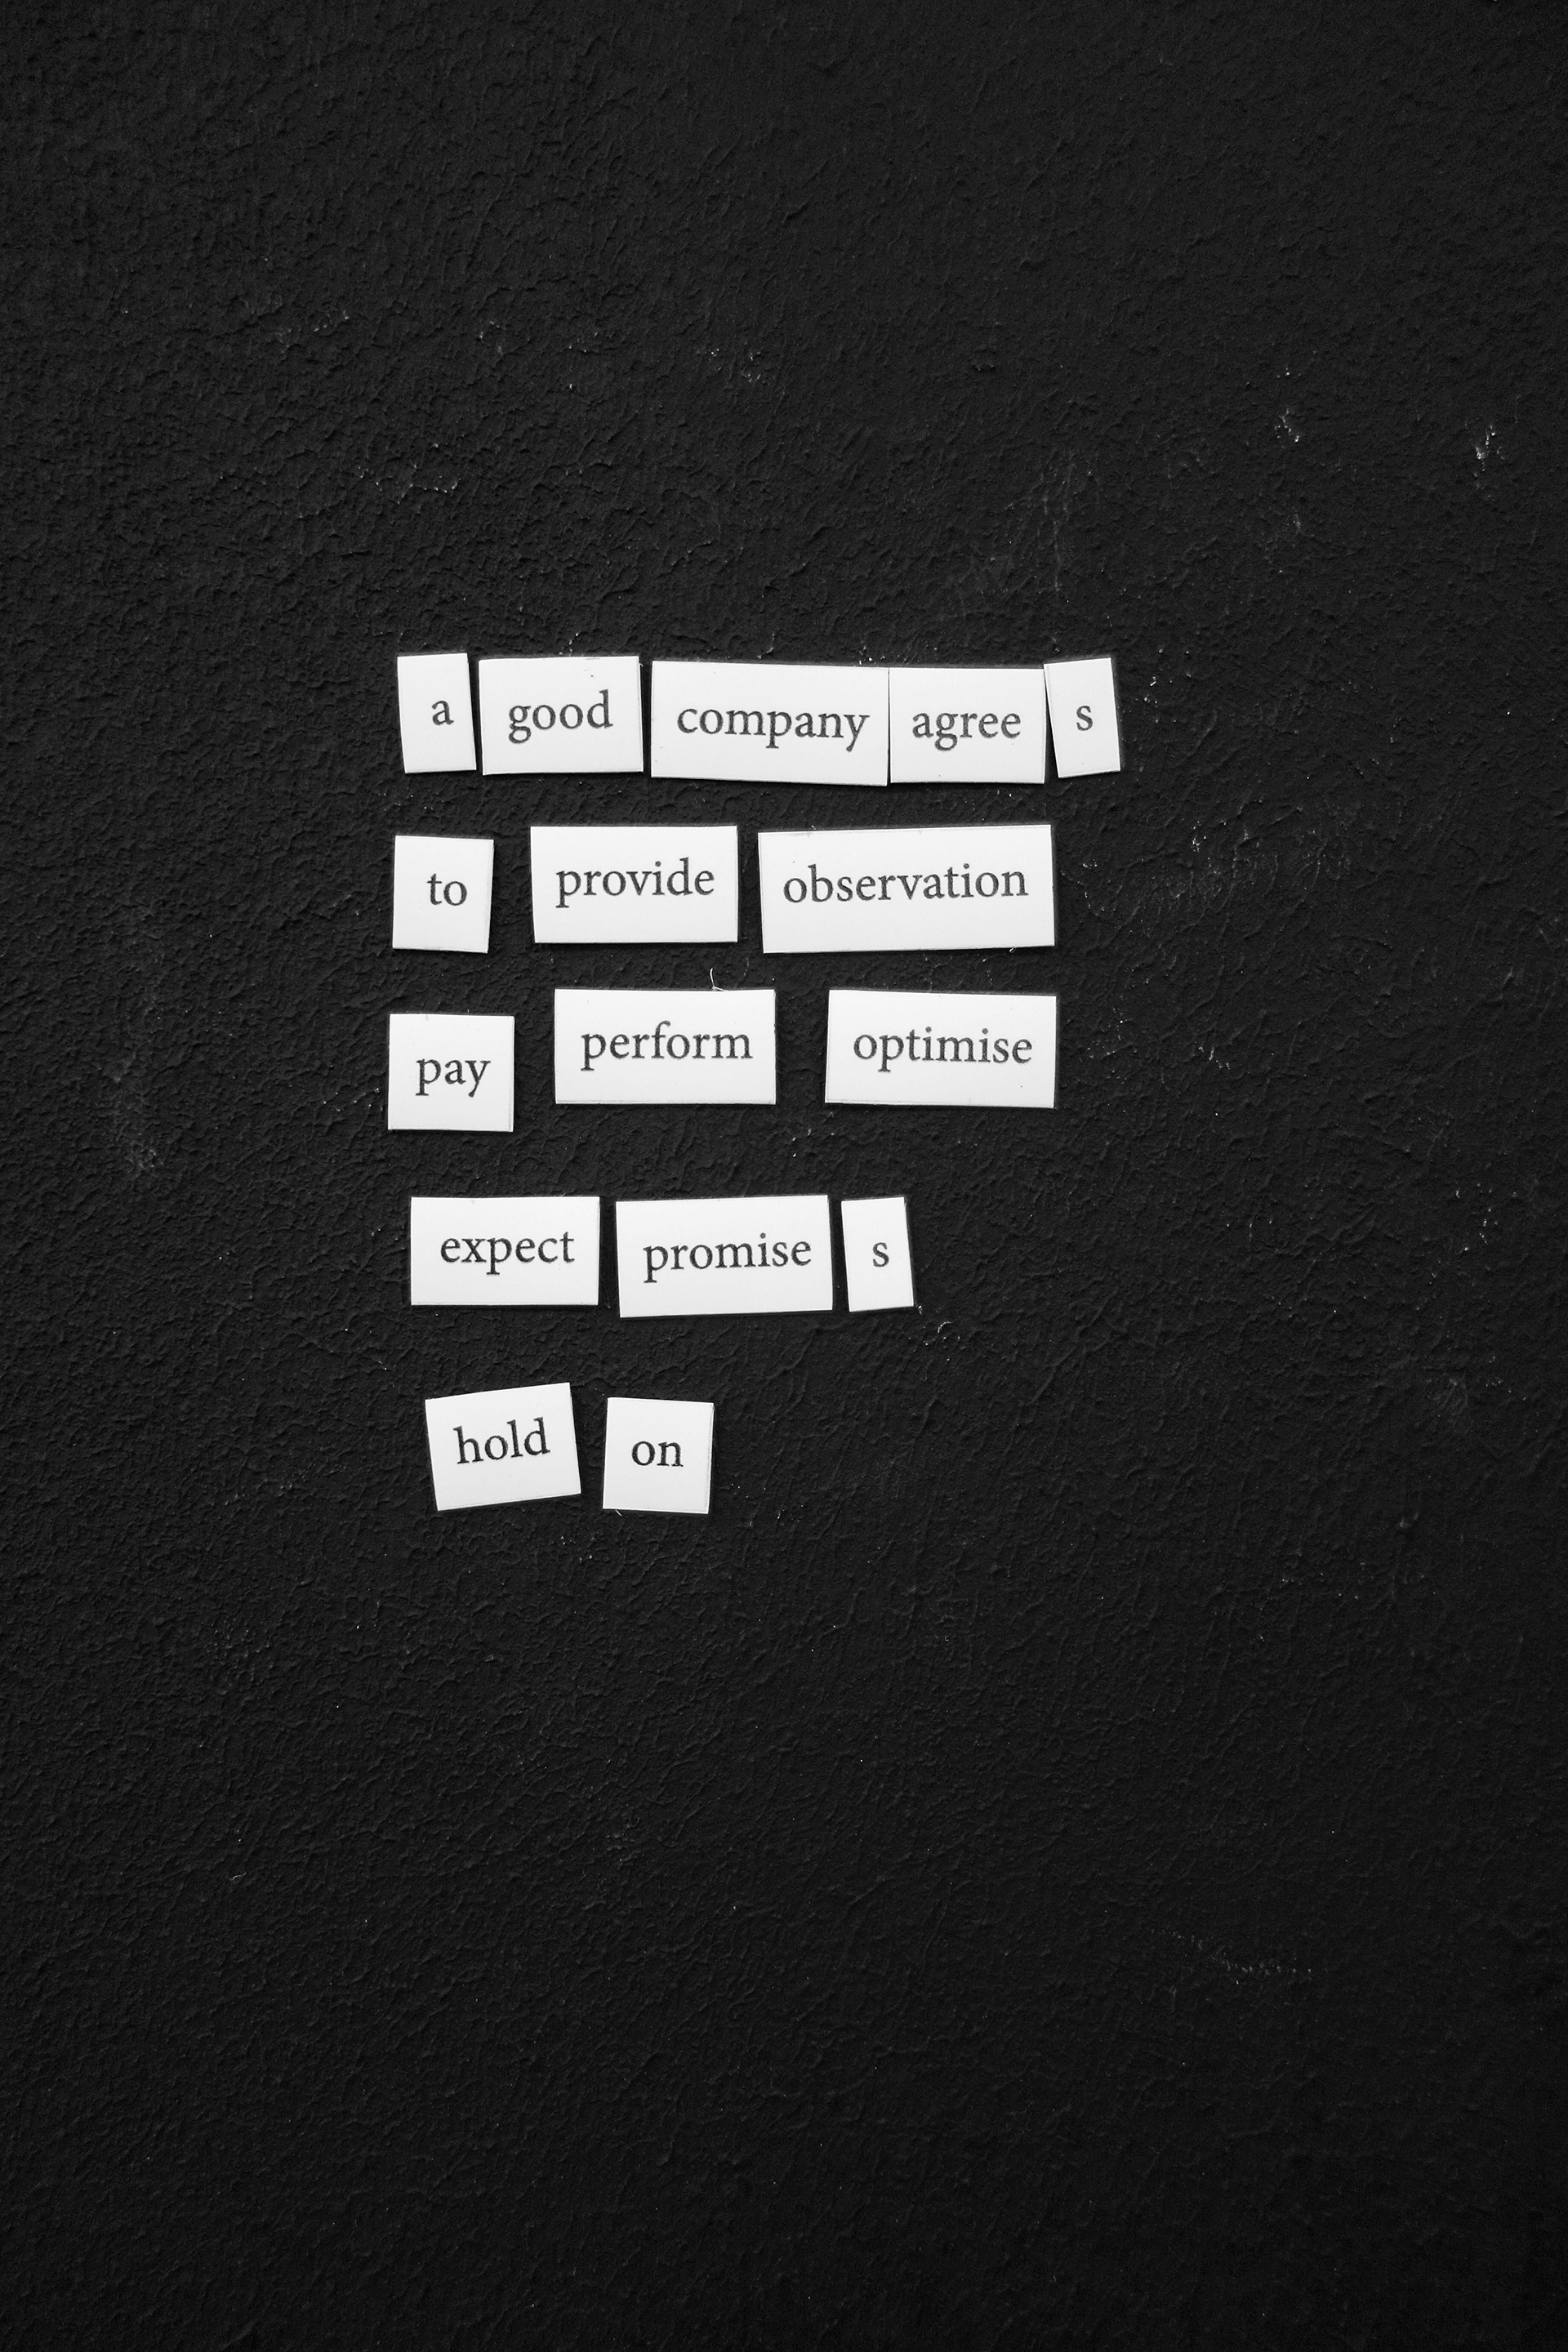 a good company agree s
to provide observation
pay perform optimise
expect promise s
hold on